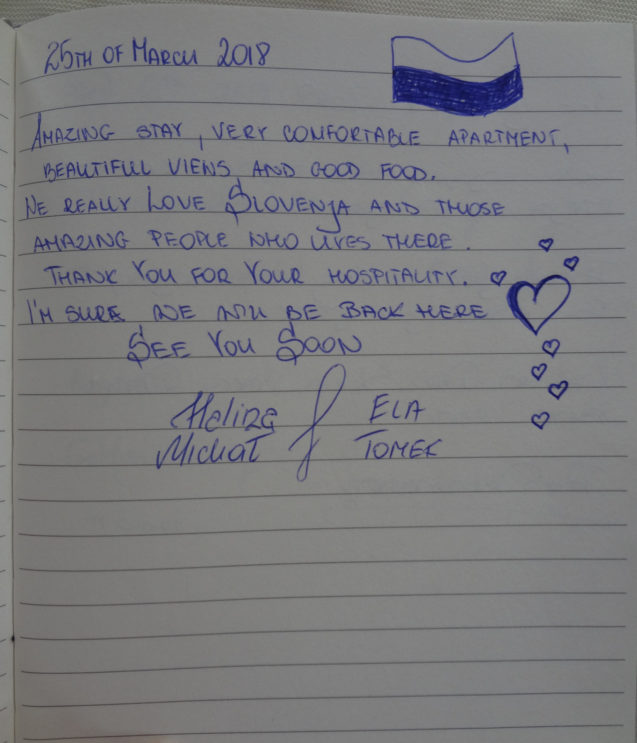 25TH OF MARCH 2018
AMAZING STAY, VERY COMFORTABLE APARTMENT,
BEAUTIFUL VIEWS AND GOOD FOOD.
WE REALLY LOVE SLOVENJA AND THOSE
AMAZING PEOPLE WHO LIVES THERE.
THANK YOU FOR YOUR HOSPITALITY.
I'M SURE WE WILL BE BACK HERE
SEE YOU SOON
Halina ELA
Michał TOMEK